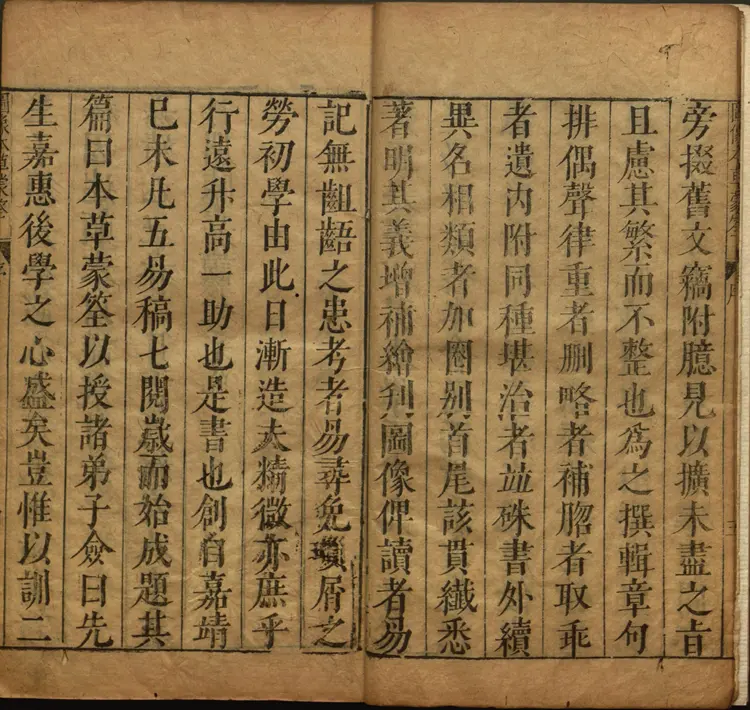 旁掇舊文竊附臆見以擴未盡之旨
且慮其繁而不整也為之撰輯章句
排偶聲律重者刪略者補䐶者取乖
者遺内附同種堪治者並硃書外續
異名相類者加圈别首尾該貫纖悉
著明其義增補繪刋圖像俾讀者易
記無齟齬之患考者易尋免瑣屑之
勞初學由此日漸造夫精微亦庶乎
行遠升高一助也是書也創自嘉靖
巳未凡五易稿七閱歲而始成題其
篇曰本草蒙筌以授諸弟子僉曰先
生嘉惠後學之心盛矣豈惟以訓二